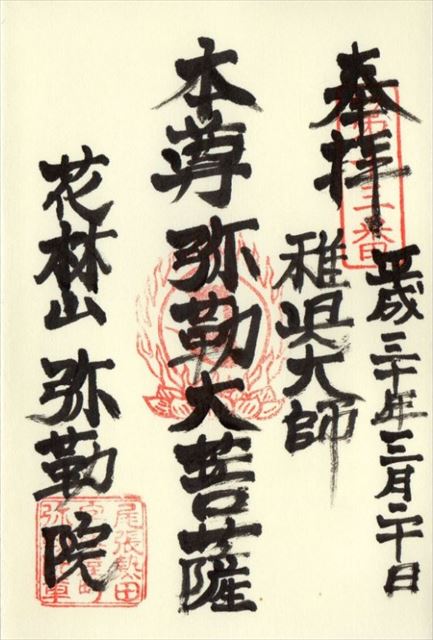 奉拝
平成三十年三月二十日
稚児大師
本尊 弥勒大菩薩
花林山 弥勒院
尾張熱田